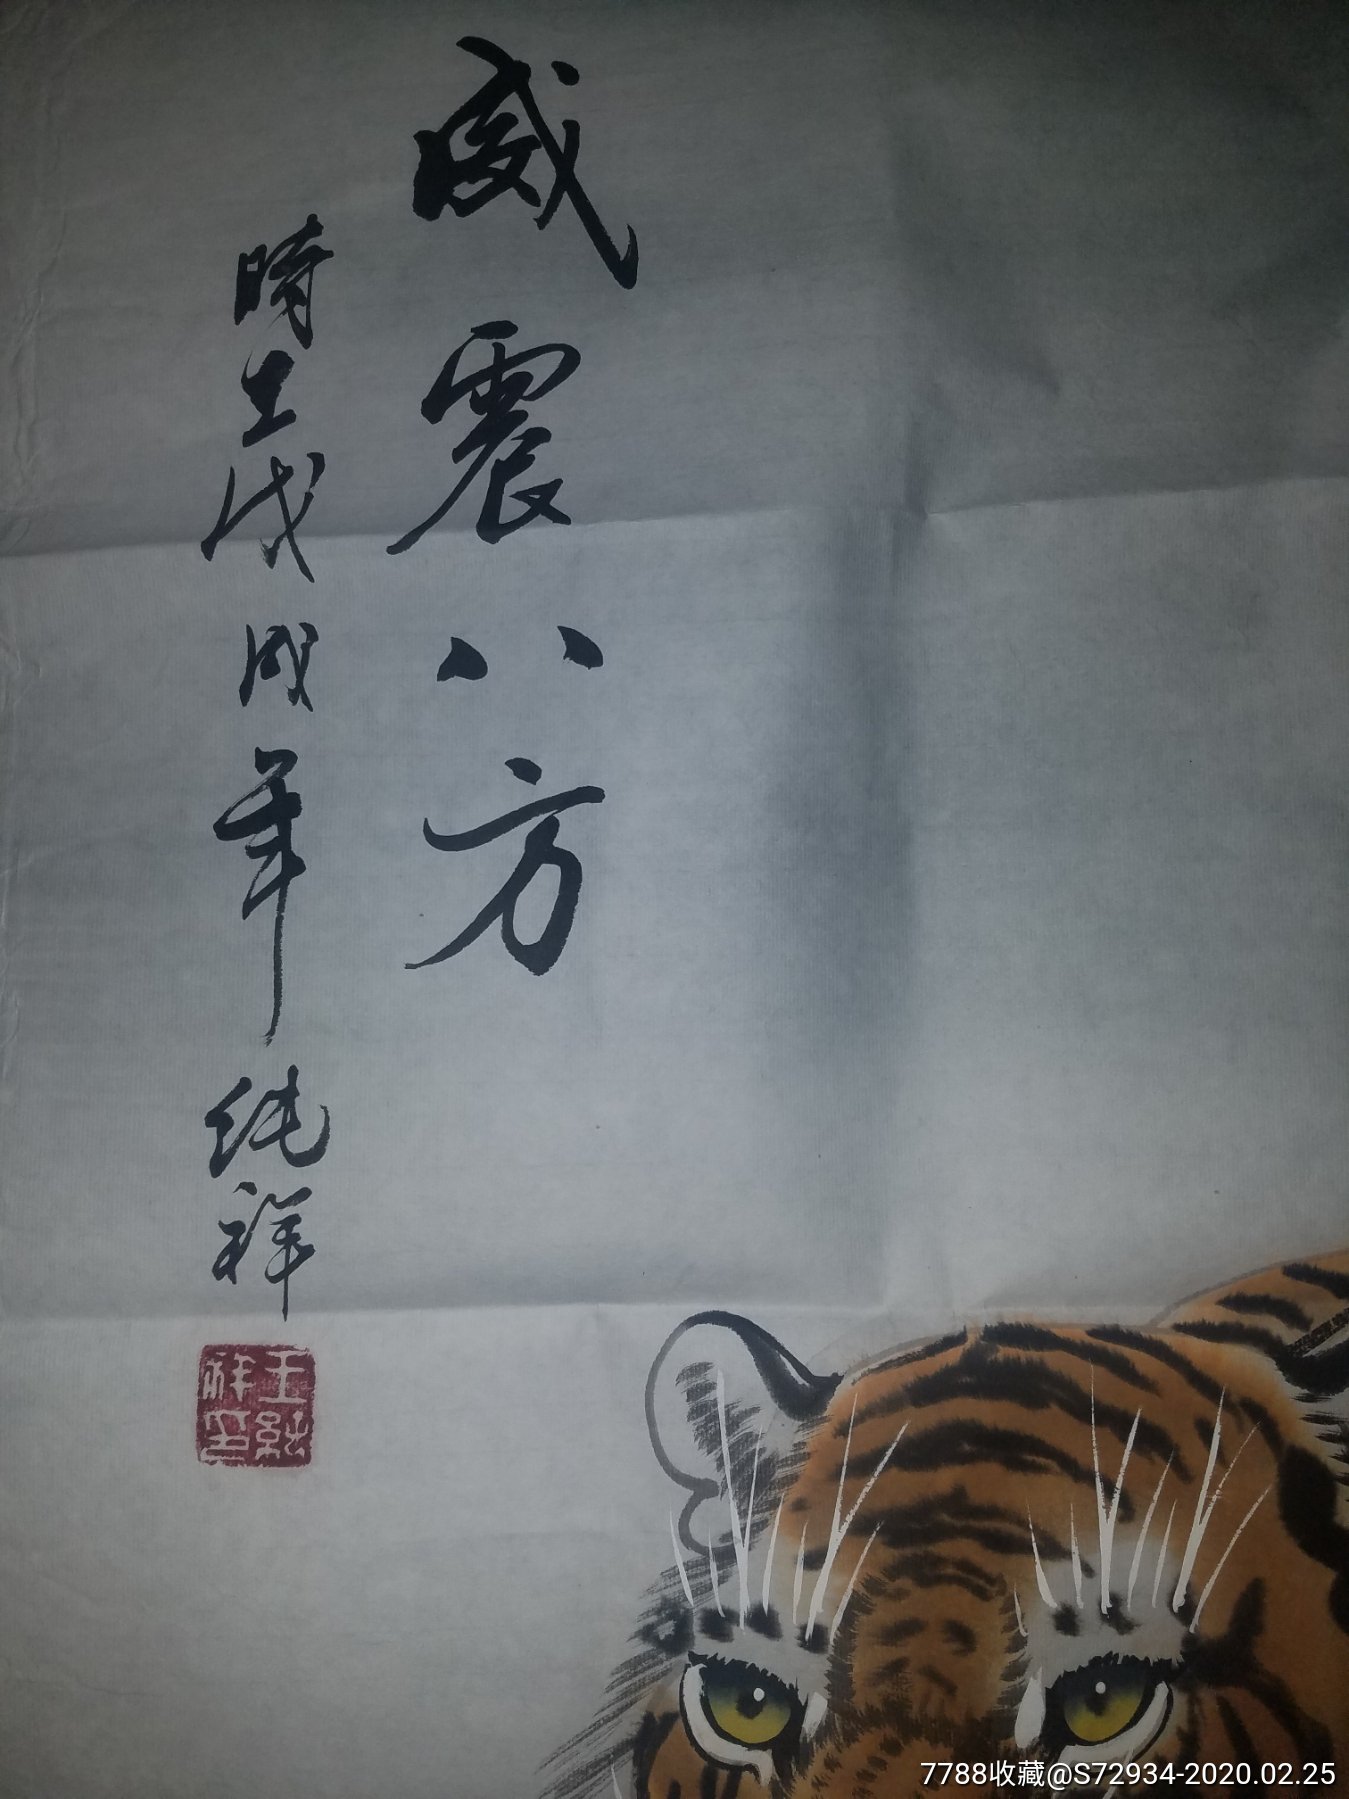 威震八方
時在戊戌年纯祥
王純
祥印
7788收藏@S72934-2020.02.25